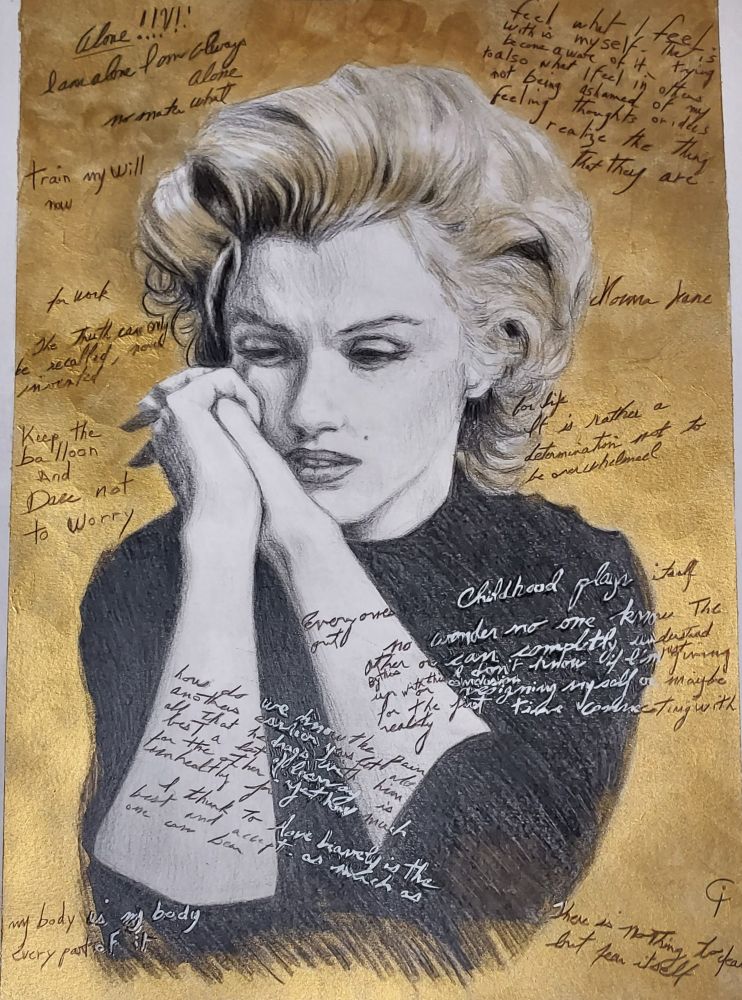 Alone!!!V!!
I am alone I am always
alone
no mater what
feel what I feel is
with is myself - the
trying
become aware of it -
to also what I feel in others
not being ashamed of my
feeling thoughts or ideas
realize the thing
that they are
train my Will
now
for work
The Truth can only
be recalled, never
invented
Norma Jane
for life
It is rather a
determination not to
be overwhelmed
Keep the
balloon
And
Dare not
to Worry
Childhood plays itself
out
Everyones
no wonder no one know The
other or can completly understand
By this I don't know if I'm just giving
up with this conclusion resigning myself or maybe
for the first time connecting with
reality
how do we know the pain
anothers earlier years let alone
all that he drags with him
best a lot of is
for the other
unhealthy for
much
I think to love bravely is the
best and accept - as much as
one can bear
my body is my body
every part of it
There is nothing to fear
but fear itself